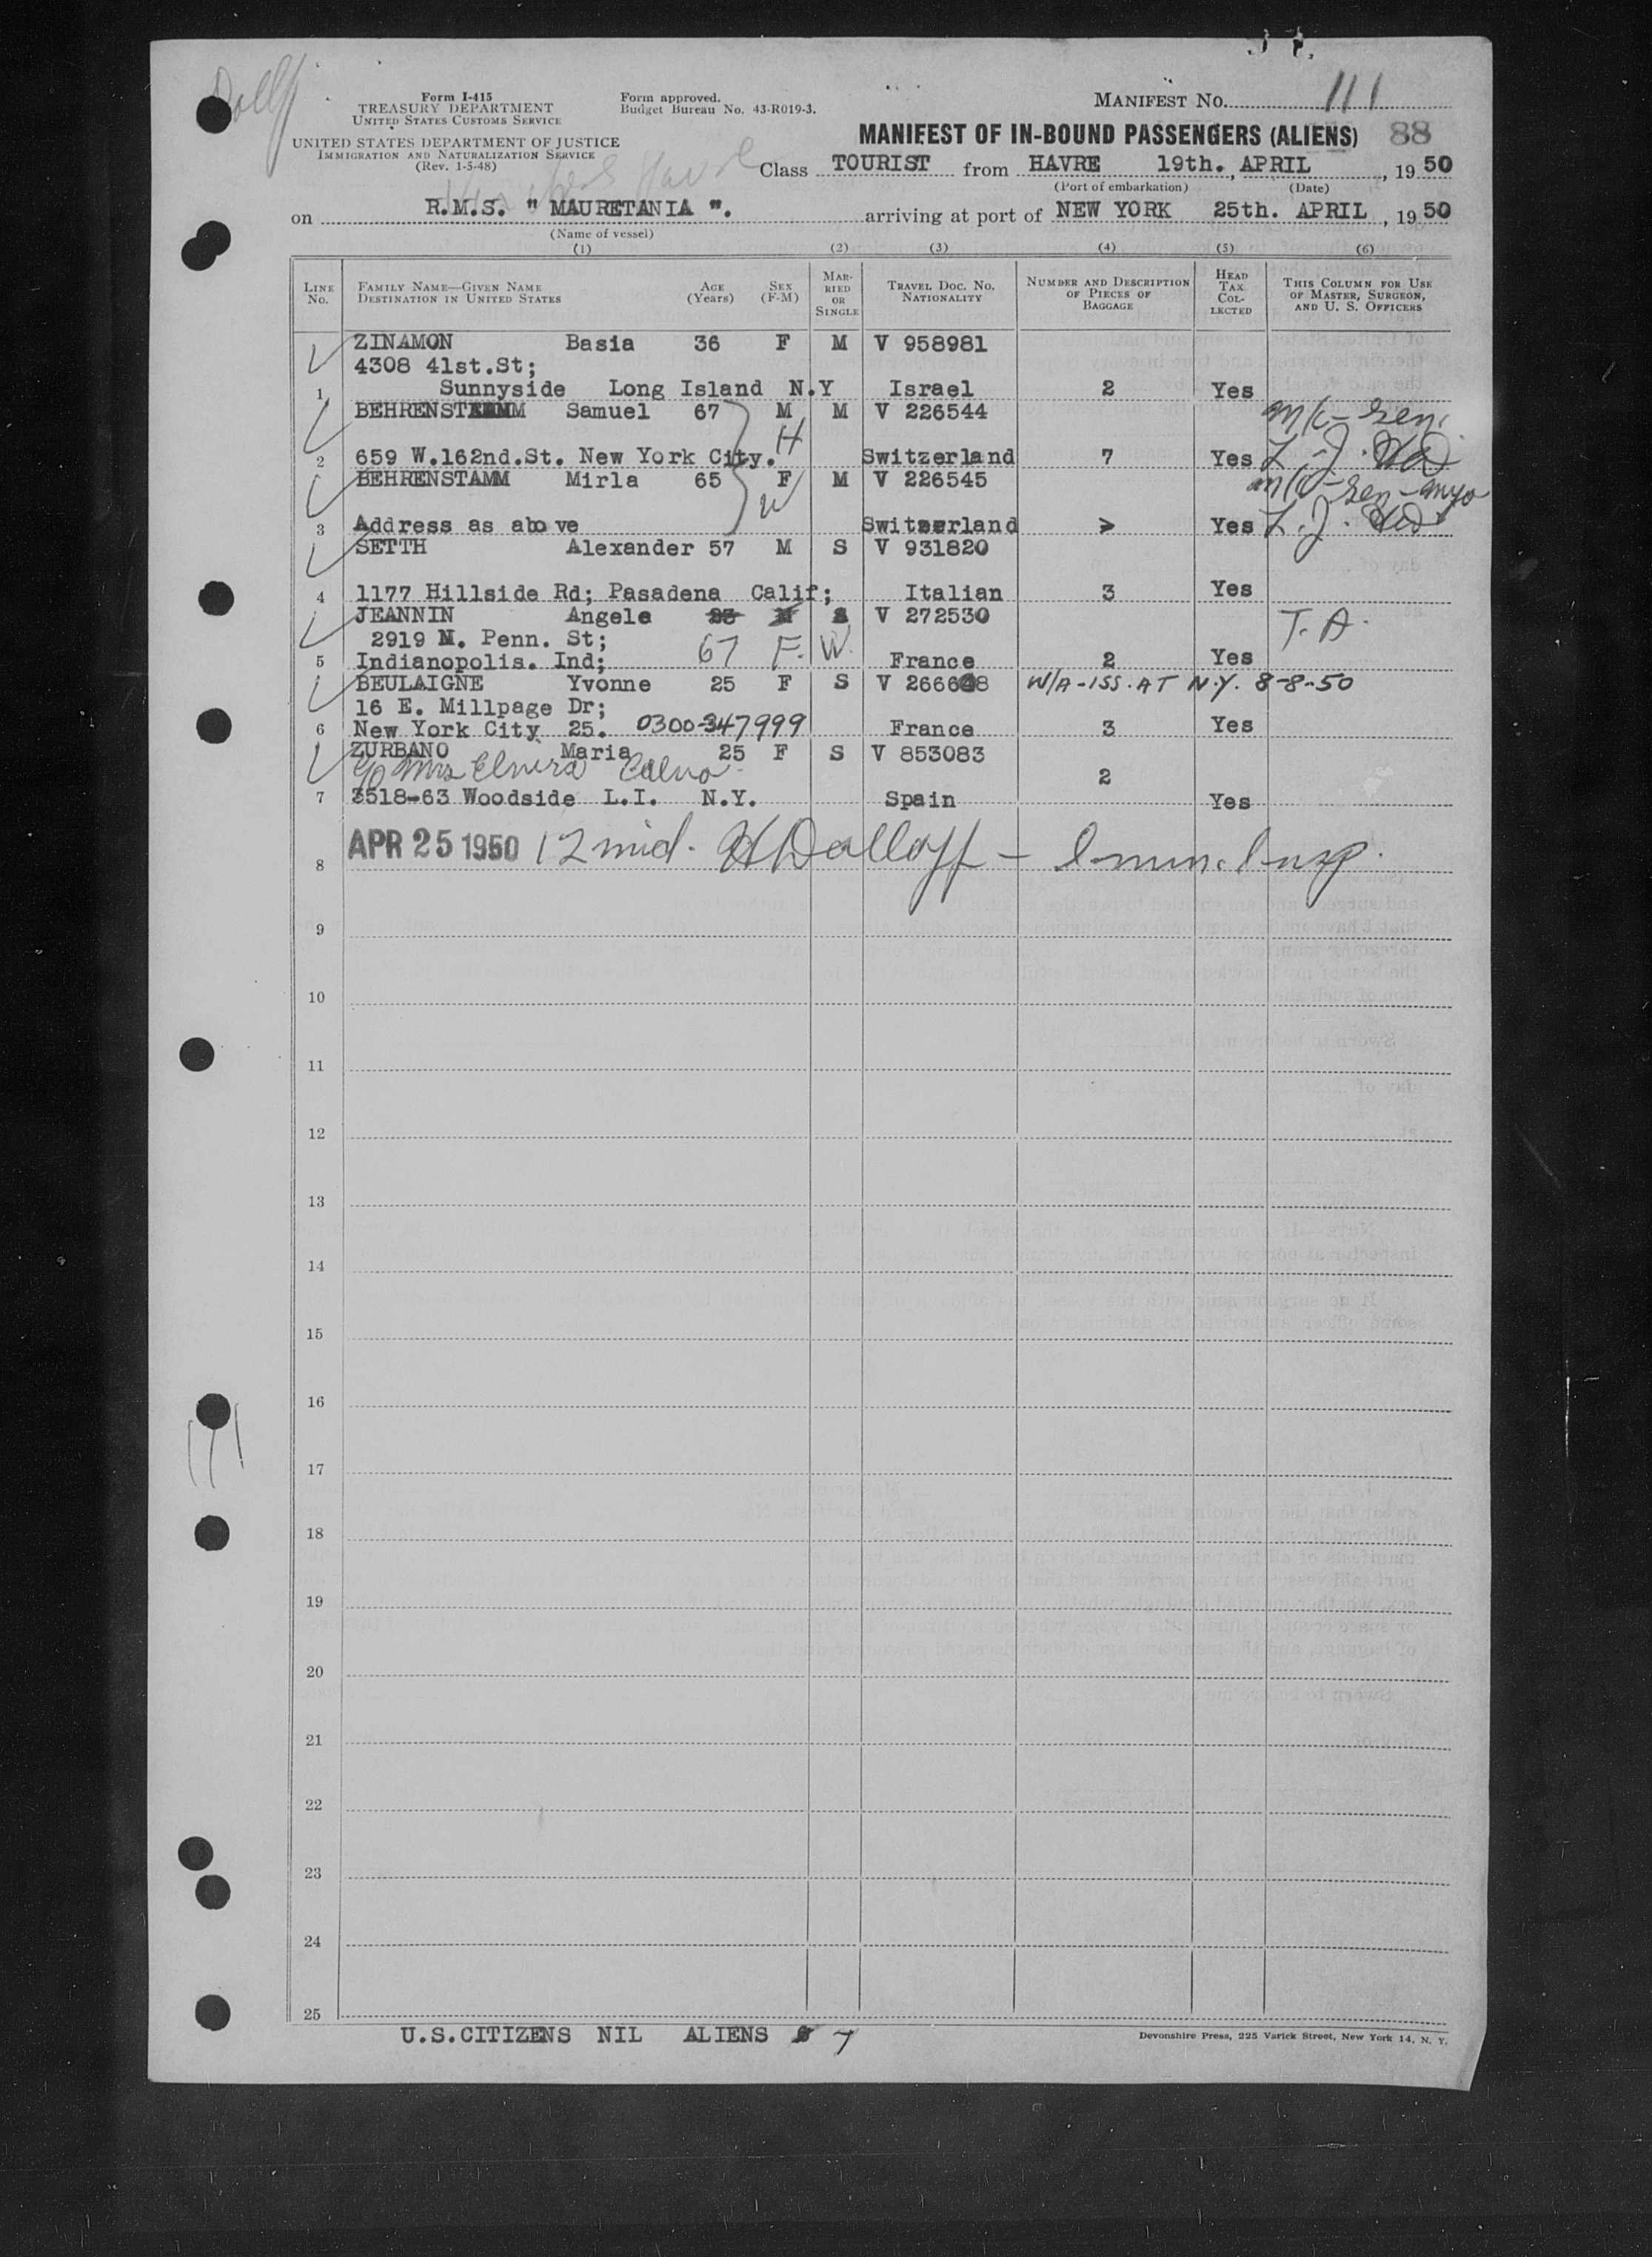 Form I-415
TREASURY DEPARTMENT
UNITED STATES CUSTOMS SERVICE
UNITED STATES DEPARTMENT OF JUSTICE
IMMIGRATION AND NATURALIZATION SERVICE
(Rev. 1-5-48)
Form approved.
Budget Bureau No. 43-R019-3.
MANIFEST NO. 111
MANIFEST OF IN-BOUND PASSENGERS (ALIENS) 88
Class TOURIST from HAVRE 19th. APRIL, 1950
(Port of embarkation) (Date)
on R.M.S. " MAURETANIA ". arriving at port of NEW YORK 25th. APRIL, 1950
(Name of vessel)
(1) (2) (3) (4) (5) (6)
LINE NO. FAMILY NAME—GIVEN NAME DESTINATION IN UNITED STATES AGE (Years) SEX (F-M) MARRIED OR SINGLE TRAVEL DOC. NO. NATIONALITY NUMBER AND DESCRIPTION OF PIECES OF BAGGAGE HEAD TAX COLLECTED THIS COLUMN FOR USE OF MASTER, SURGEON, AND U. S. OFFICERS
ZINAMON Basia 36 F M V 958981
4308 41st.St;
1 Sunnyside Long Island N.Y Israel 2 Yes
BEHRENSTAMM Samuel 67 M M V 226544
H
2 659 W.162nd.St. New York City. Switzerland 7 Yes
BEHRENSTAMM Mirla 65 F M V 226545
W
3 Address as above Switzerland > Yes
SETTH Alexander 57 M S V 931820
4 1177 Hillside Rd; Pasadena Calif; Italian 3 Yes
JEANNIN Angele V 272530 T.A.
2919 N. Penn. St; 67 F. W.
5 Indianopolis. Ind; France 2 Yes
BEULAIGNE Yvonne 25 F S V 266648 W/A-ISS. AT N.Y. 8-8-50
16 E. Millpage Dr;
6 New York City 25. 0300-347999 France 3 Yes
ZURBANO Maria 25 F S V 853083
c/o Mrs Elvira Calvo 2
7 3518-63 Woodside L.I. N.Y. Spain Yes
8 APR 25 1950 12 mid. H Dalloff - Immn. Insp.
9
10
11
12
13
14
15
16
17
18
19
20
21
22
23
24
25
U.S.CITIZENS NIL ALIENS 7
Devonshire Press, 225 Varick Street, New York 14, N. Y.